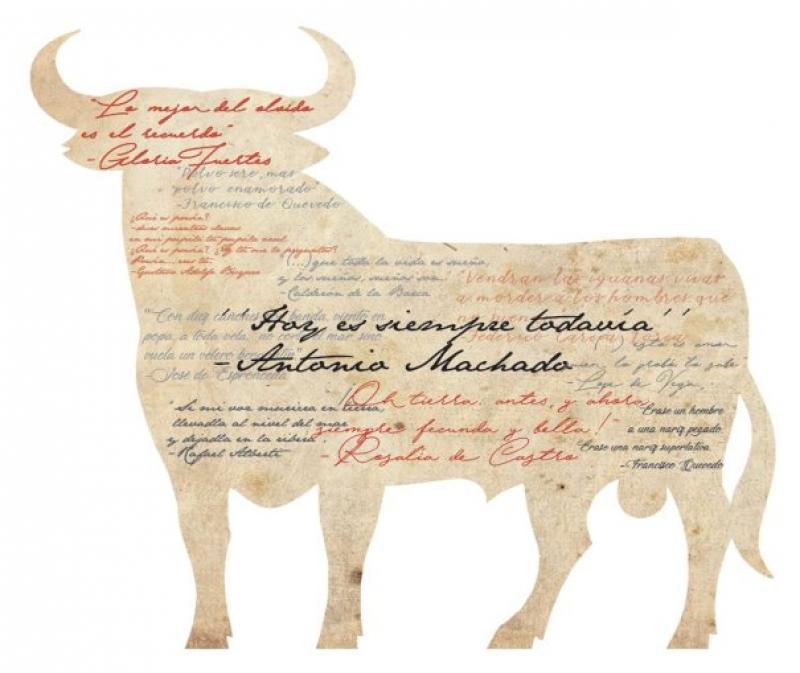 "Lo mejor del olvido
es el recuerdo"
- Gloria Fuertes
"Polvo seré, mas
polvo enamorado"
-Francisco de Quevedo
¿Qué es poesía?
-dices mientras clavas
en mi pupila tu pupila azul.
¿Qué es poesía? ¿Y tú me lo preguntas?
Poesía... eres tú.
-Gustavo Adolfo Bécquer
(...) que toda la vida es sueño,
y los sueños, sueños son.
-Calderón de la Barca
"Vendrán las iguanas vivas
a morder a los hombres que
no
Federico García Lorca
"Con diez cañones por banda, viento en
popa, a toda vela, no corta el mar, sino
vuela un velero bergantín"
-José de Espronceda
"Hoy es siempre todavía"
-Antonio Machado
(...) esto es amor
quien lo probó lo sabe"
-Lope de Vega,
"Si mi voz muriera en tierra,
llevadla al nivel del mar
y dejadla en la ribera.
-Rafael Alberti
¡Oh tierra, antes y ahora,
siempre fecunda y bella!"
- Rosalía de Castro
"Érase un hombre
a una nariz pegado.
Érase una nariz superlativa.
-Francisco Quevedo